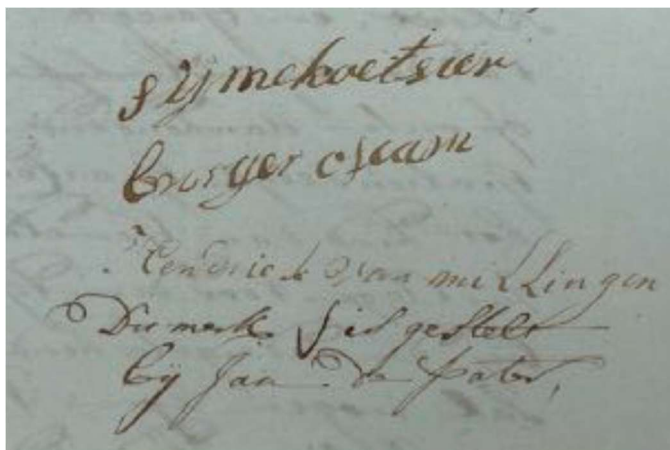 sijmekoetsier
burger cseam
Hendrick van millingen
Dit merk is gestelt
bij Jan De pater,